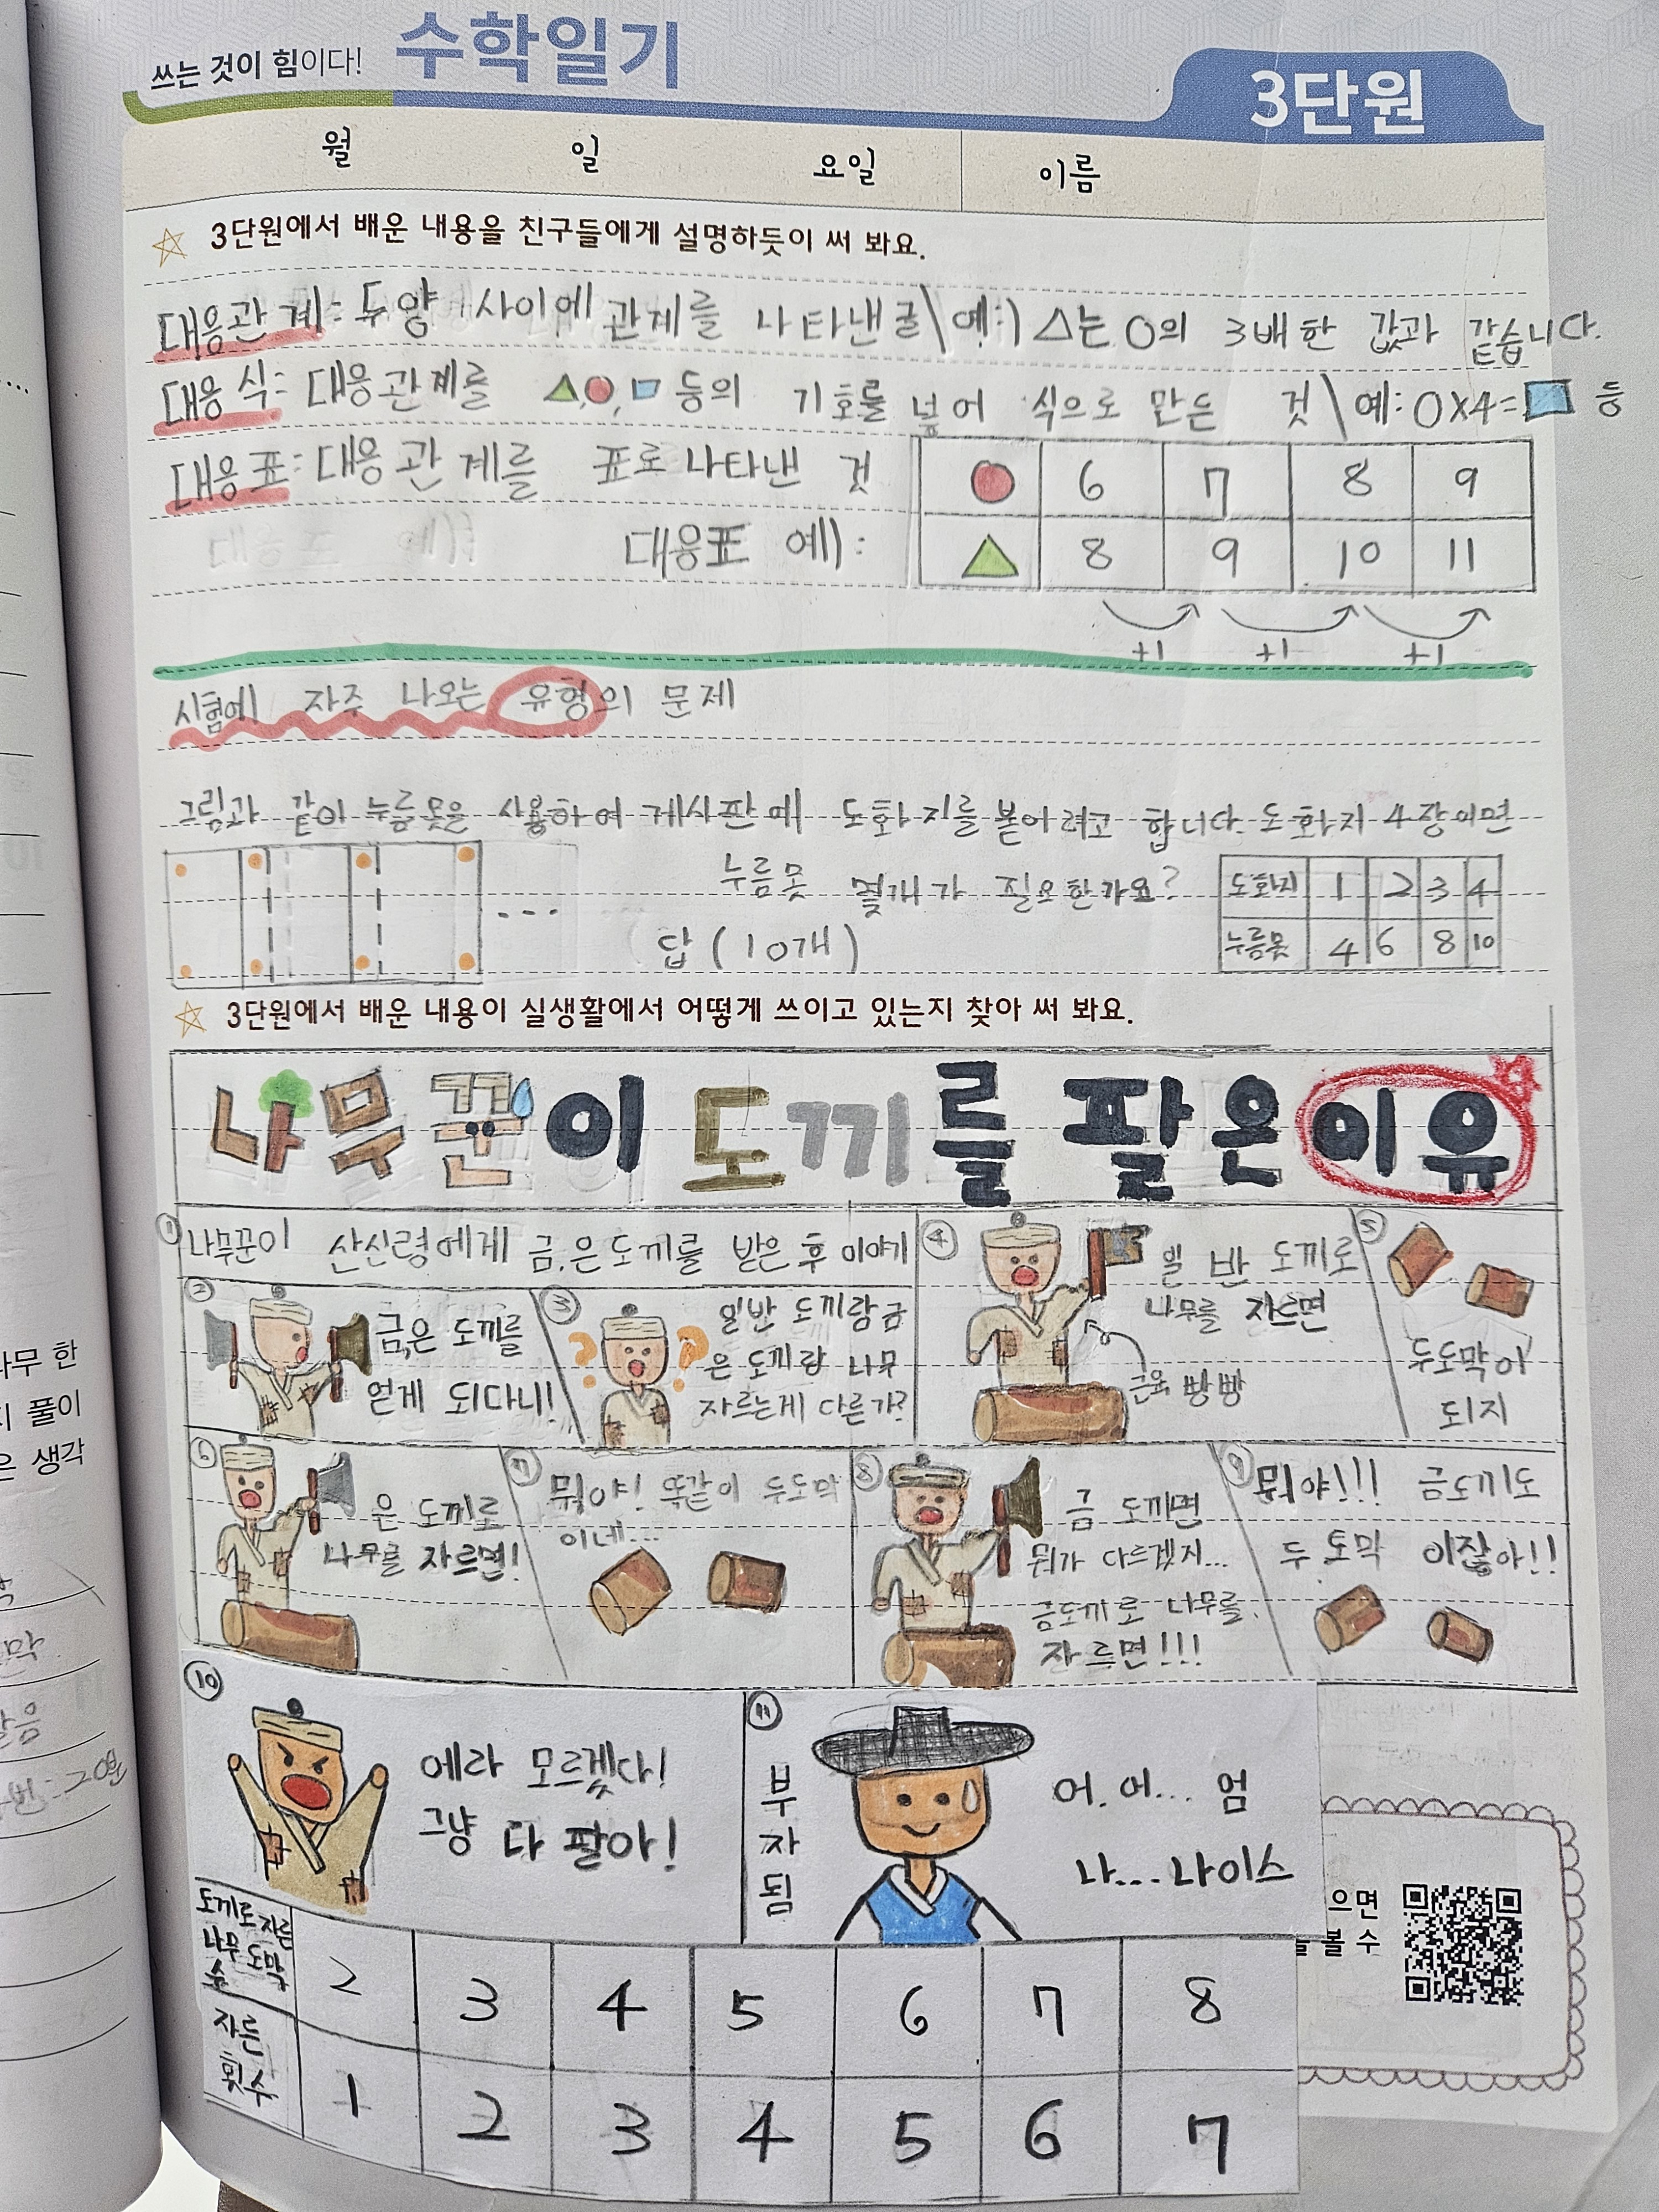 쓰는 것이 힘이다! 수학일기
3단원
월 일 요일 이름
3단원에서 배운 내용을 친구들에게 설명하듯이 써 봐요.
대응관계: 두 양 사이에 관계를 나타낸 글\예:) △는 ○의 3배 한 값과 같습니다.
대응 식: 대응관계를 △,○,□ 등의 기호를 넣어 식으로 만든 것\예: ○×4=□ 등
대응표: 대응 관계를 표로 나타낸 것
대응표 예):
● 6 7 8 9
▲ 8 9 10 11
+1 +1 +1
시험에 자주 나오는 유형의 문제
그림과 같이 누름못을 사용하여 게시판에 도화지를 붙이려고 합니다. 도화지 4장이면
누름못 몇개가 필요한가요?
...
답 (10개)
도화지 1 2 3 4
누름못 4 6 8 10
3단원에서 배운 내용이 실생활에서 어떻게 쓰이고 있는지 찾아 써 봐요.
나무꾼이 도끼를 팔은 이유
① 나무꾼이 산신령에게 금.은도끼를 받은 후 이야기
② 금,은 도끼를
얻게 되다니!
③ ? ?
일반 도끼랑 금
은 도끼랑 나무
자르는게 다른가?
④ 일반 도끼로
나무를 자르면
근육 빵빵
⑤ 두도막이
되지
⑥ 은 도끼로
나무를 자르면!
⑦ 뭐야! 똑같이 두도막
이네...
⑧ 금 도끼면
뭐가 다르겠지...
금도끼로 나무를
자르면!!!
⑨ 뭐야!!! 금도끼도
두 토막 이잖아!!
⑩ 에라 모르겠다!
그냥 다 팔아!
⑪ 부자됨
어.어... 엄
나...나이스
도끼로 자른
나무 도막
수
2 3 4 5 6 7 8
자른
횟수
1 2 3 4 5 6 7
으면
볼 수
나무 한
풀이
은 생각